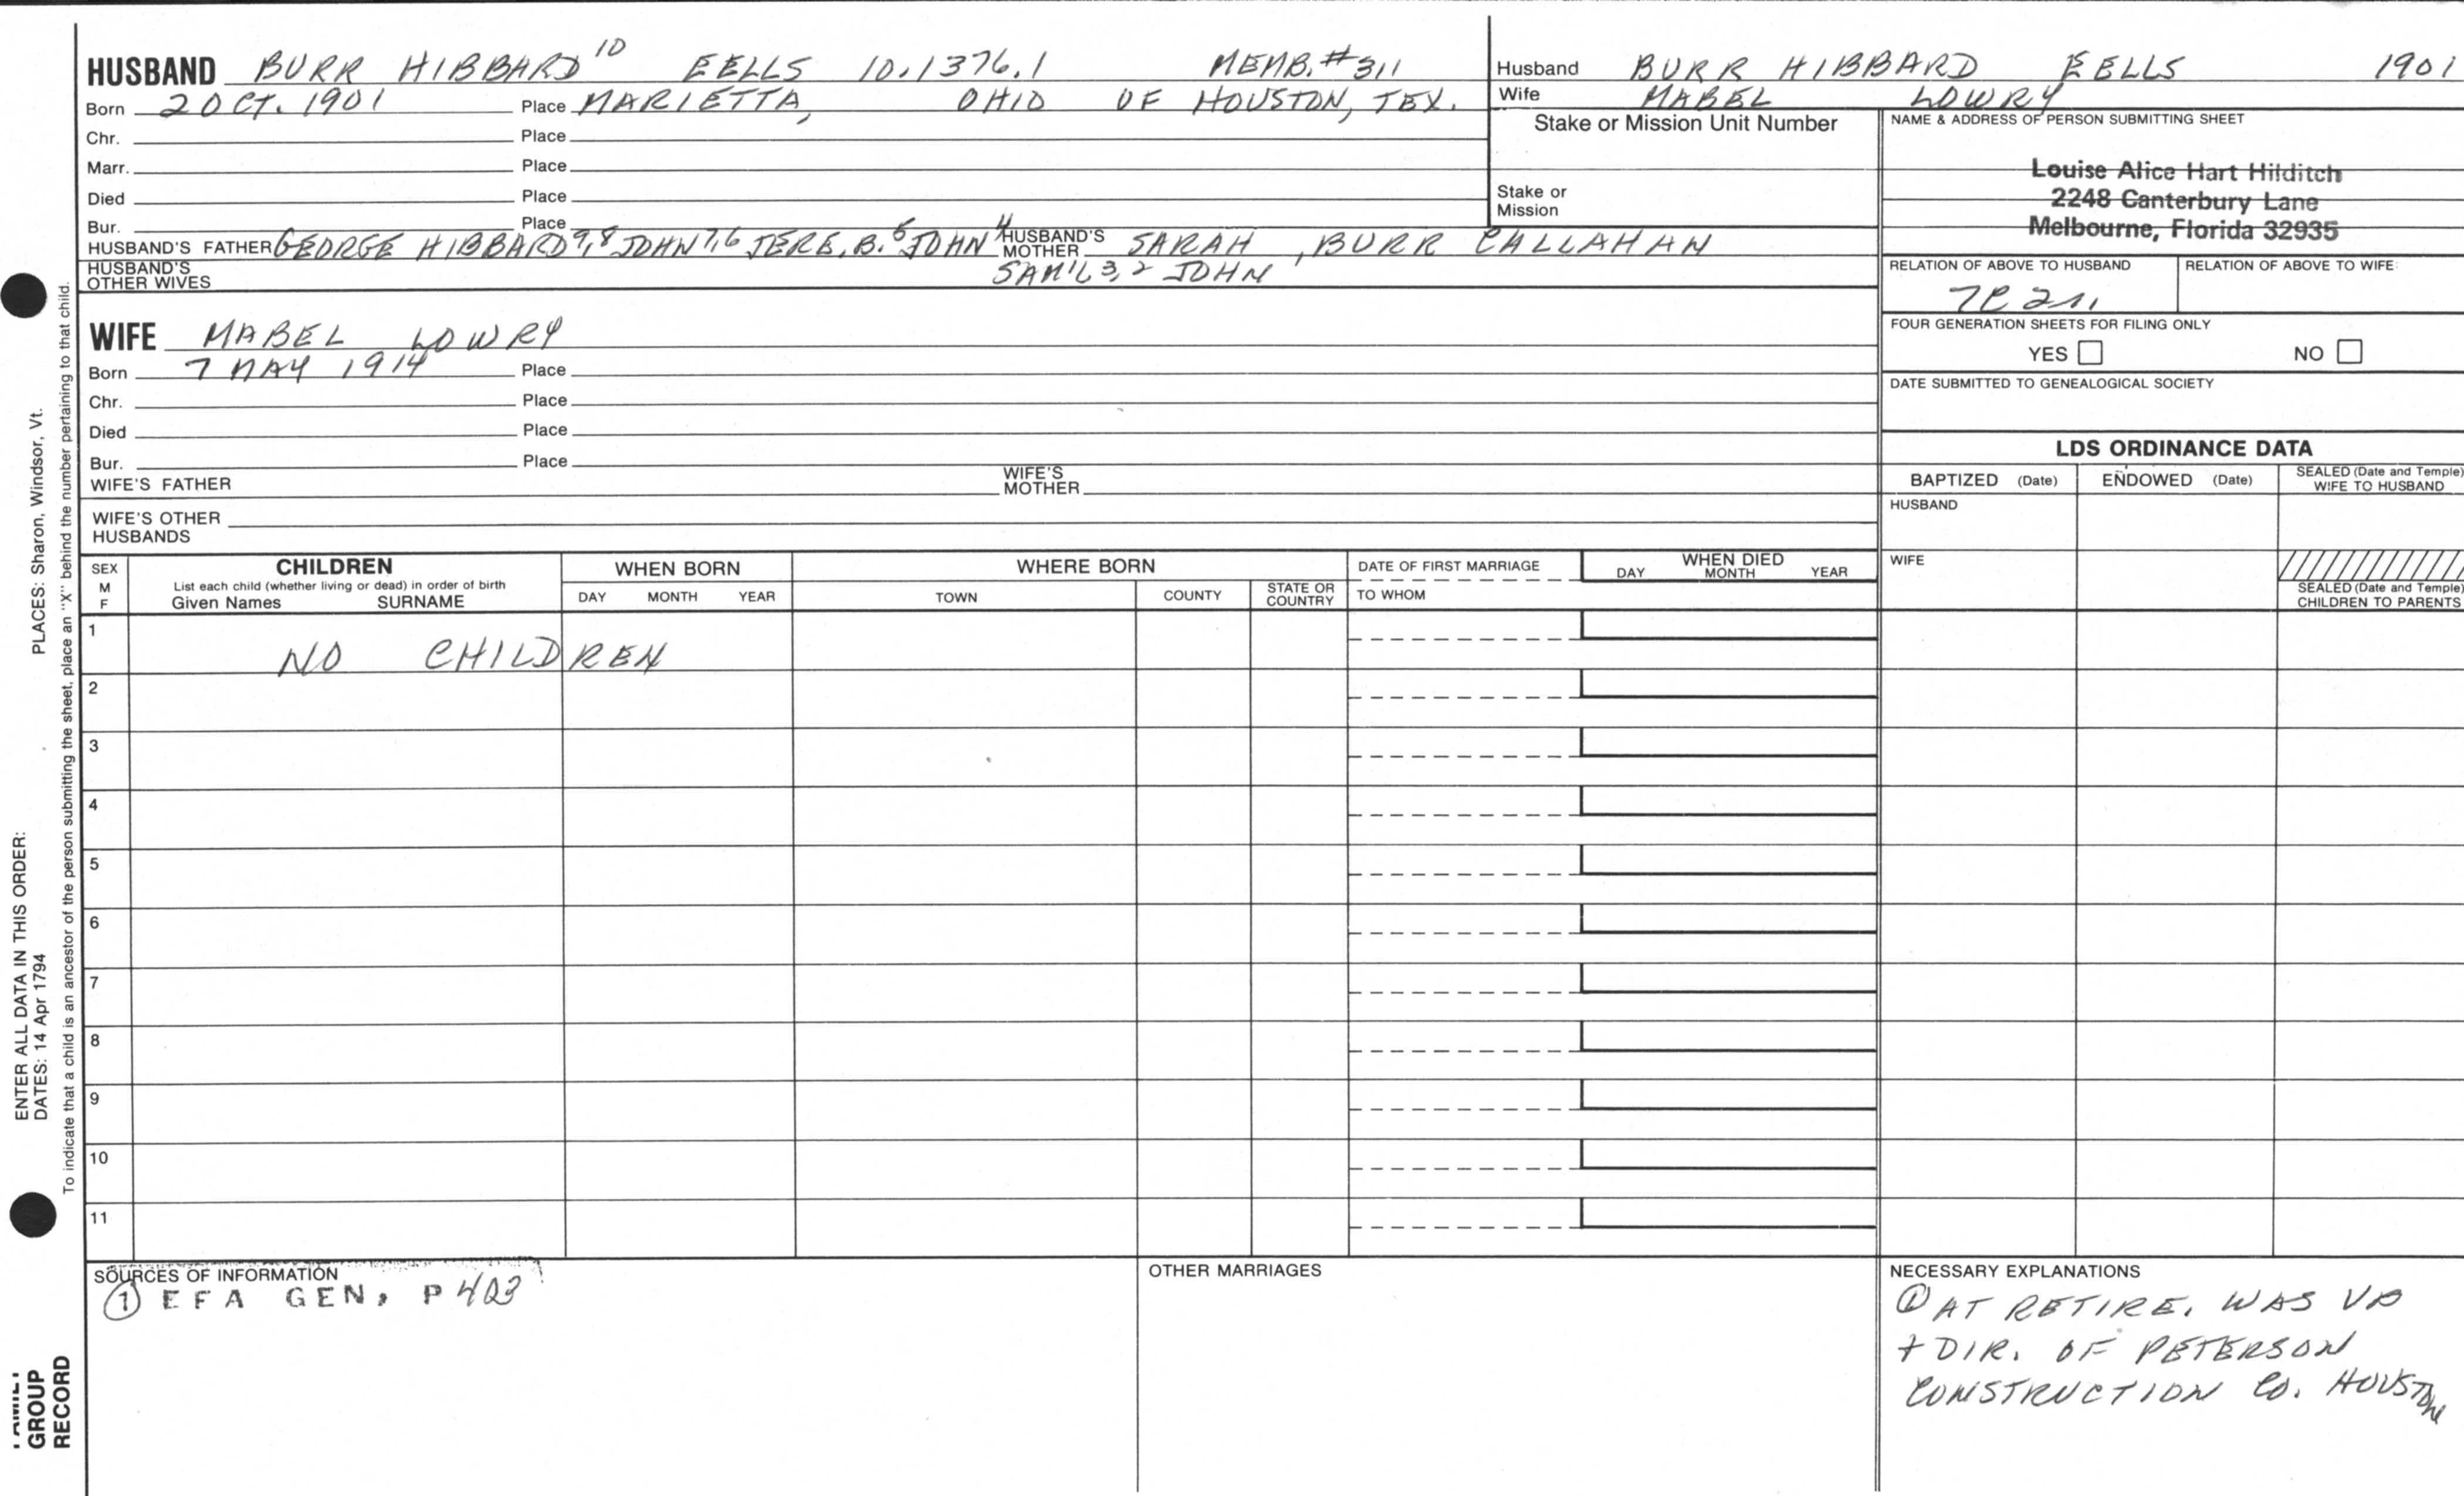 HUSBAND BURR HIBBARD 10 EELLS 10.1376.1 MEMB. #311
Born 2 OCT. 1901 Place MARIETTA, OHIO OF HOUSTON, TEX.
Chr. Place
Marr. Place
Died Place
Bur. Place
HUSBAND'S FATHER GEORGE HIBBARD 9,8 JOHN 7,6 JERE. B. 5 JOHN 4 HUSBAND'S MOTHER SARAH, BURR CALLAHAN
HUSBAND'S OTHER WIVES SAM'L 3,2 JOHN
Husband BURR HIBBARD EELLS 1901
Wife MABEL LOWRY
Stake or Mission Unit Number
Stake or
Mission
NAME & ADDRESS OF PERSON SUBMITTING SHEET
Louise Alice Hart Hilditch
2248 Canterbury Lane
Melbourne, Florida 32935
RELATION OF ABOVE TO HUSBAND RELATION OF ABOVE TO WIFE:
FOUR GENERATION SHEETS FOR FILING ONLY
YES NO
DATE SUBMITTED TO GENEALOGICAL SOCIETY
WIFE MABEL LOWRY
Born 7 MAY 1914 Place
Chr. Place
Died Place
Bur. Place
WIFE'S FATHER WIFE'S MOTHER
WIFE'S OTHER
HUSBANDS
LDS ORDINANCE DATA
BAPTIZED (Date) ENDOWED (Date) SEALED (Date and Temple) WIFE TO HUSBAND
HUSBAND
WIFE
SEALED (Date and Temple)
CHILDREN TO PARENTS
SEX M F
CHILDREN
List each child (whether living or dead) in order of birth
Given Names SURNAME
WHEN BORN
DAY MONTH YEAR
WHERE BORN
TOWN COUNTY STATE OR COUNTRY
DATE OF FIRST MARRIAGE
TO WHOM
WHEN DIED
DAY MONTH YEAR
1 NO CHILDREN
2
3
4
5
6
7
8
9
10
11
SOURCES OF INFORMATION
① EFA GEN, P 403
OTHER MARRIAGES
NECESSARY EXPLANATIONS
① AT RETIRE. WAS VP
+ DIR. OF PETERSON
CONSTRUCTION CO. HOUSTON
PLACES: Sharon, Windsor, Vt.
ENTER ALL DATA IN THIS ORDER:
DATES: 14 Apr 1794
To indicate that a child is an ancestor of the person submitting the sheet, place an "X" behind the number pertaining to that child.
FAMILY
GROUP
RECORD